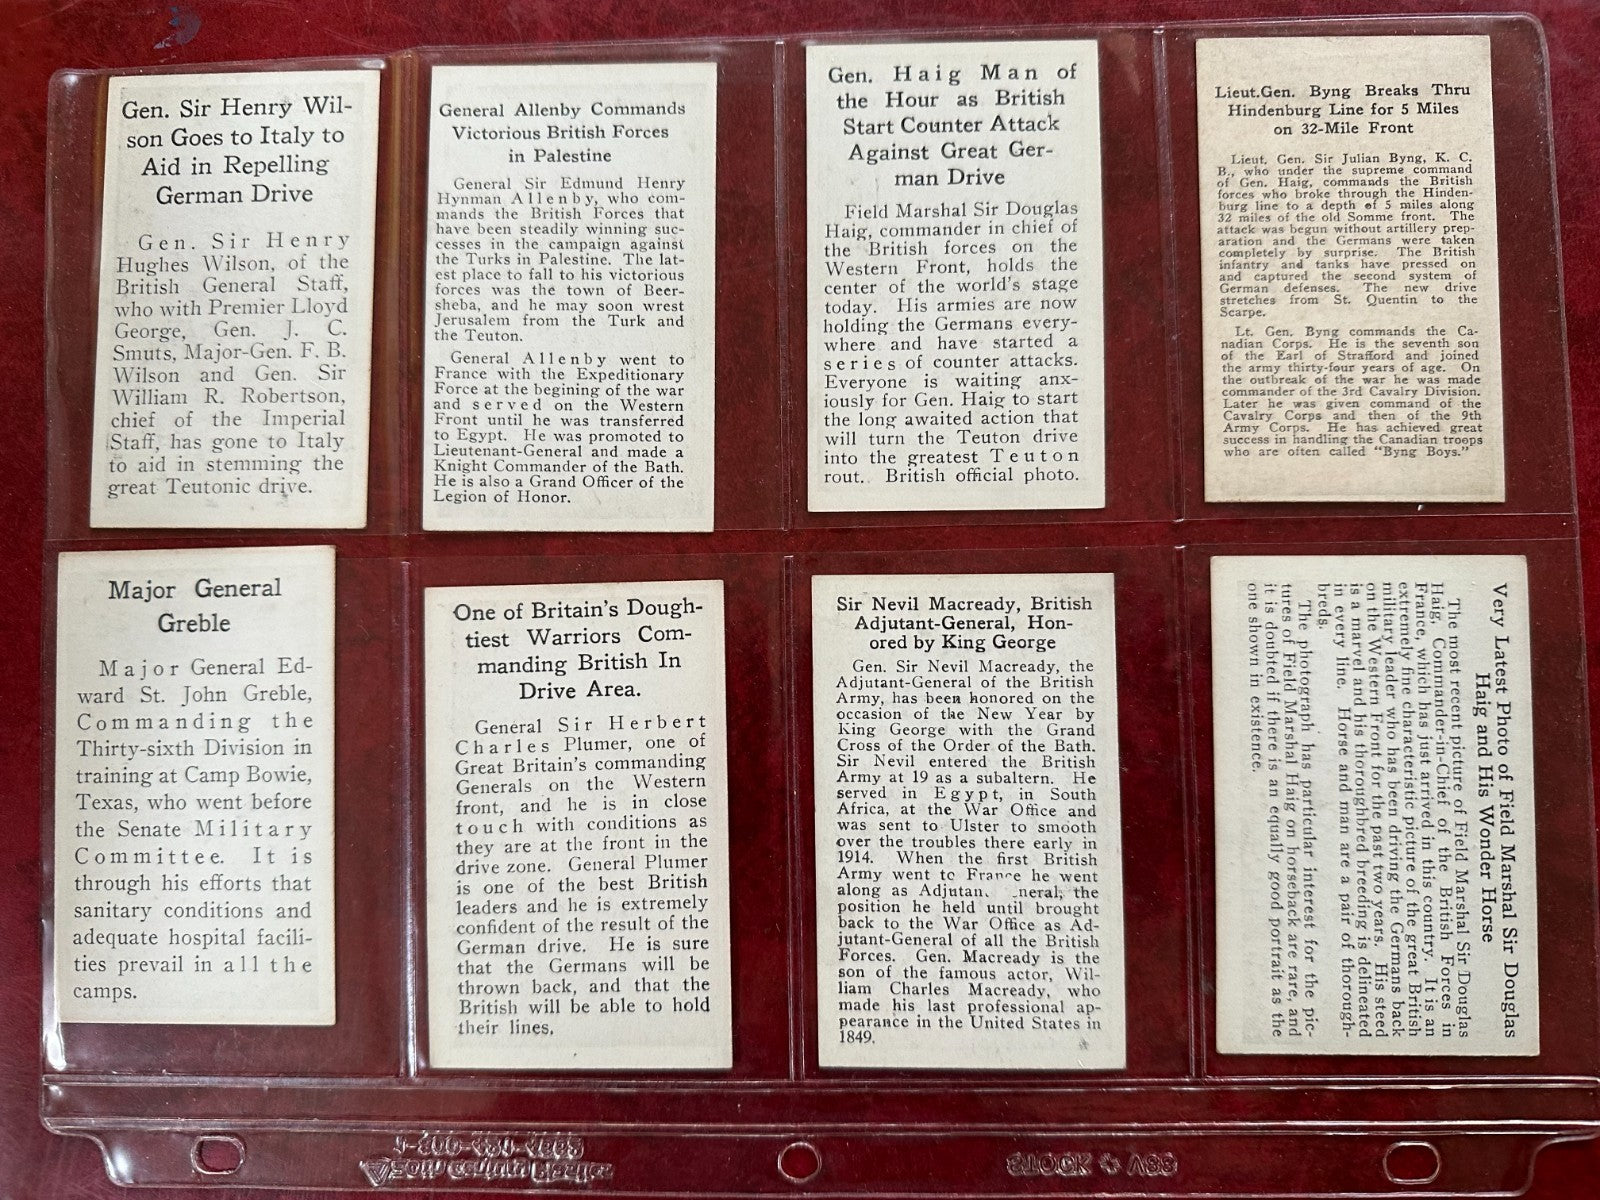 Gen. Sir Henry Wil-
son Goes to Italy to
Aid in Repelling
German Drive
Gen. Sir Henry
Hughes Wilson, of the
British General Staff,
who with Premier Lloyd
George, Gen. J. C.
Smuts, Major-Gen. F. B.
Wilson and Gen. Sir
William R. Robertson,
chief of the Imperial
Staff, has gone to Italy
to aid in stemming the
great Teutonic drive.
General Allenby Commands
Victorious British Forces
in Palestine
General Sir Edmund Henry
Hynman Allenby, who com-
mands the British Forces that
have been steadily winning suc-
cesses in the campaign against
the Turks in Palestine. The lat-
est place to fall to his victorious
forces was the town of Beer-
sheba, and he may soon wrest
Jerusalem from the Turk and
the Teuton.
General Allenby went to
France with the Expeditionary
Force at the begining of the war
and served on the Western
Front until he was transferred
to Egypt. He was promoted to
Lieutenant-General and made a
Knight Commander of the Bath.
He is also a Grand Officer of the
Legion of Honor.
Gen. Haig Man of
the Hour as British
Start Counter Attack
Against Great Ger-
man Drive
Field Marshal Sir Douglas
Haig, commander in chief of
the British forces on the
Western Front, holds the
center of the world's stage
today. His armies are now
holding the Germans every-
where and have started a
series of counter attacks.
Everyone is waiting anx-
iously for Gen. Haig to start
the long awaited action that
will turn the Teuton drive
into the greatest Teuton
rout. British official photo.
Lieut.Gen. Byng Breaks Thru
Hindenburg Line for 5 Miles
on 32-Mile Front
Lieut. Gen. Sir Julian Byng, K. C.
B., who under the supreme command
of Gen. Haig, commands the British
forces who broke through the Hinden-
burg line to a depth of 5 miles along
32 miles of the old Somme front. The
attack was begun without artillery prep-
aration and the Germans were taken
completely by surprise. The British
infantry and tanks have pressed on
and captured the second system of
German defenses. The new drive
stretches from St. Quentin to the
Scarpe.
Lt. Gen. Byng commands the Ca-
nadian Corps. He is the seventh son
of the Earl of Strafford and joined
the army thirty-four years of age. On
the outbreak of the war he was made
commander of the 3rd Cavalry Division.
Later he was given command of the
Cavalry Corps and then of the 9th
Army Corps. He has achieved great
success in handling the Canadian troops
who are often called "Byng Boys."
Major General
Greble
Major General Ed-
ward St. John Greble,
Commanding the
Thirty-sixth Division in
training at Camp Bowie,
Texas, who went before
the Senate Military
Committee. It is
through his efforts that
sanitary conditions and
adequate hospital facili-
ties prevail in all the
camps.
One of Britain's Dough-
tiest Warriors Com-
manding British In
Drive Area.
General Sir Herbert
Charles Plumer, one of
Great Britain's commanding
Generals on the Western
front, and he is in close
touch with conditions as
they are at the front in the
drive zone. General Plumer
is one of the best British
leaders and he is extremely
confident of the result of the
German drive. He is sure
that the Germans will be
thrown back, and that the
British will be able to hold
their lines.
Sir Nevil Macready, British
Adjutant-General, Hon-
ored by King George
Gen. Sir Nevil Macready, the
Adjutant-General of the British
Army, has been honored on the
occasion of the New Year by
King George with the Grand
Cross of the Order of the Bath.
Sir Nevil entered the British
Army at 19 as a subaltern. He
served in Egypt, in South
Africa, at the War Office and
was sent to Ulster to smooth
over the troubles there early in
1914. When the first British
Army went to France he went
along as Adjutan. .neral, the
position he held until brought
back to the War Office as Ad-
jutant-General of all the British
Forces. Gen. Macready is the
son of the famous actor, Wil-
liam Charles Macready, who
made his last professional ap-
pearance in the United States in
1849.
Very Latest Photo of Field Marshal Sir Douglas
Haig and His Wonder Horse
The most recent picture of Field Marshal Sir Douglas
Haig, Commander-in-Chief of the British Forces in
France, which has just arrived in this country. It is an
extremely fine characteristic picture of the great British
military leader who has been driving the Germans back
on the Western Front for the past two years. His steed
is a marvel and his thoroughbred breeding is delineated
in every line. Horse and man are a pair of thorough-
breds.
The photograph has particular interest for the pic-
tures of Field Marshal Haig on horseback are rare, and
it is doubted if there is an equally good portrait as the
one shown in existence.
STOCK 88V